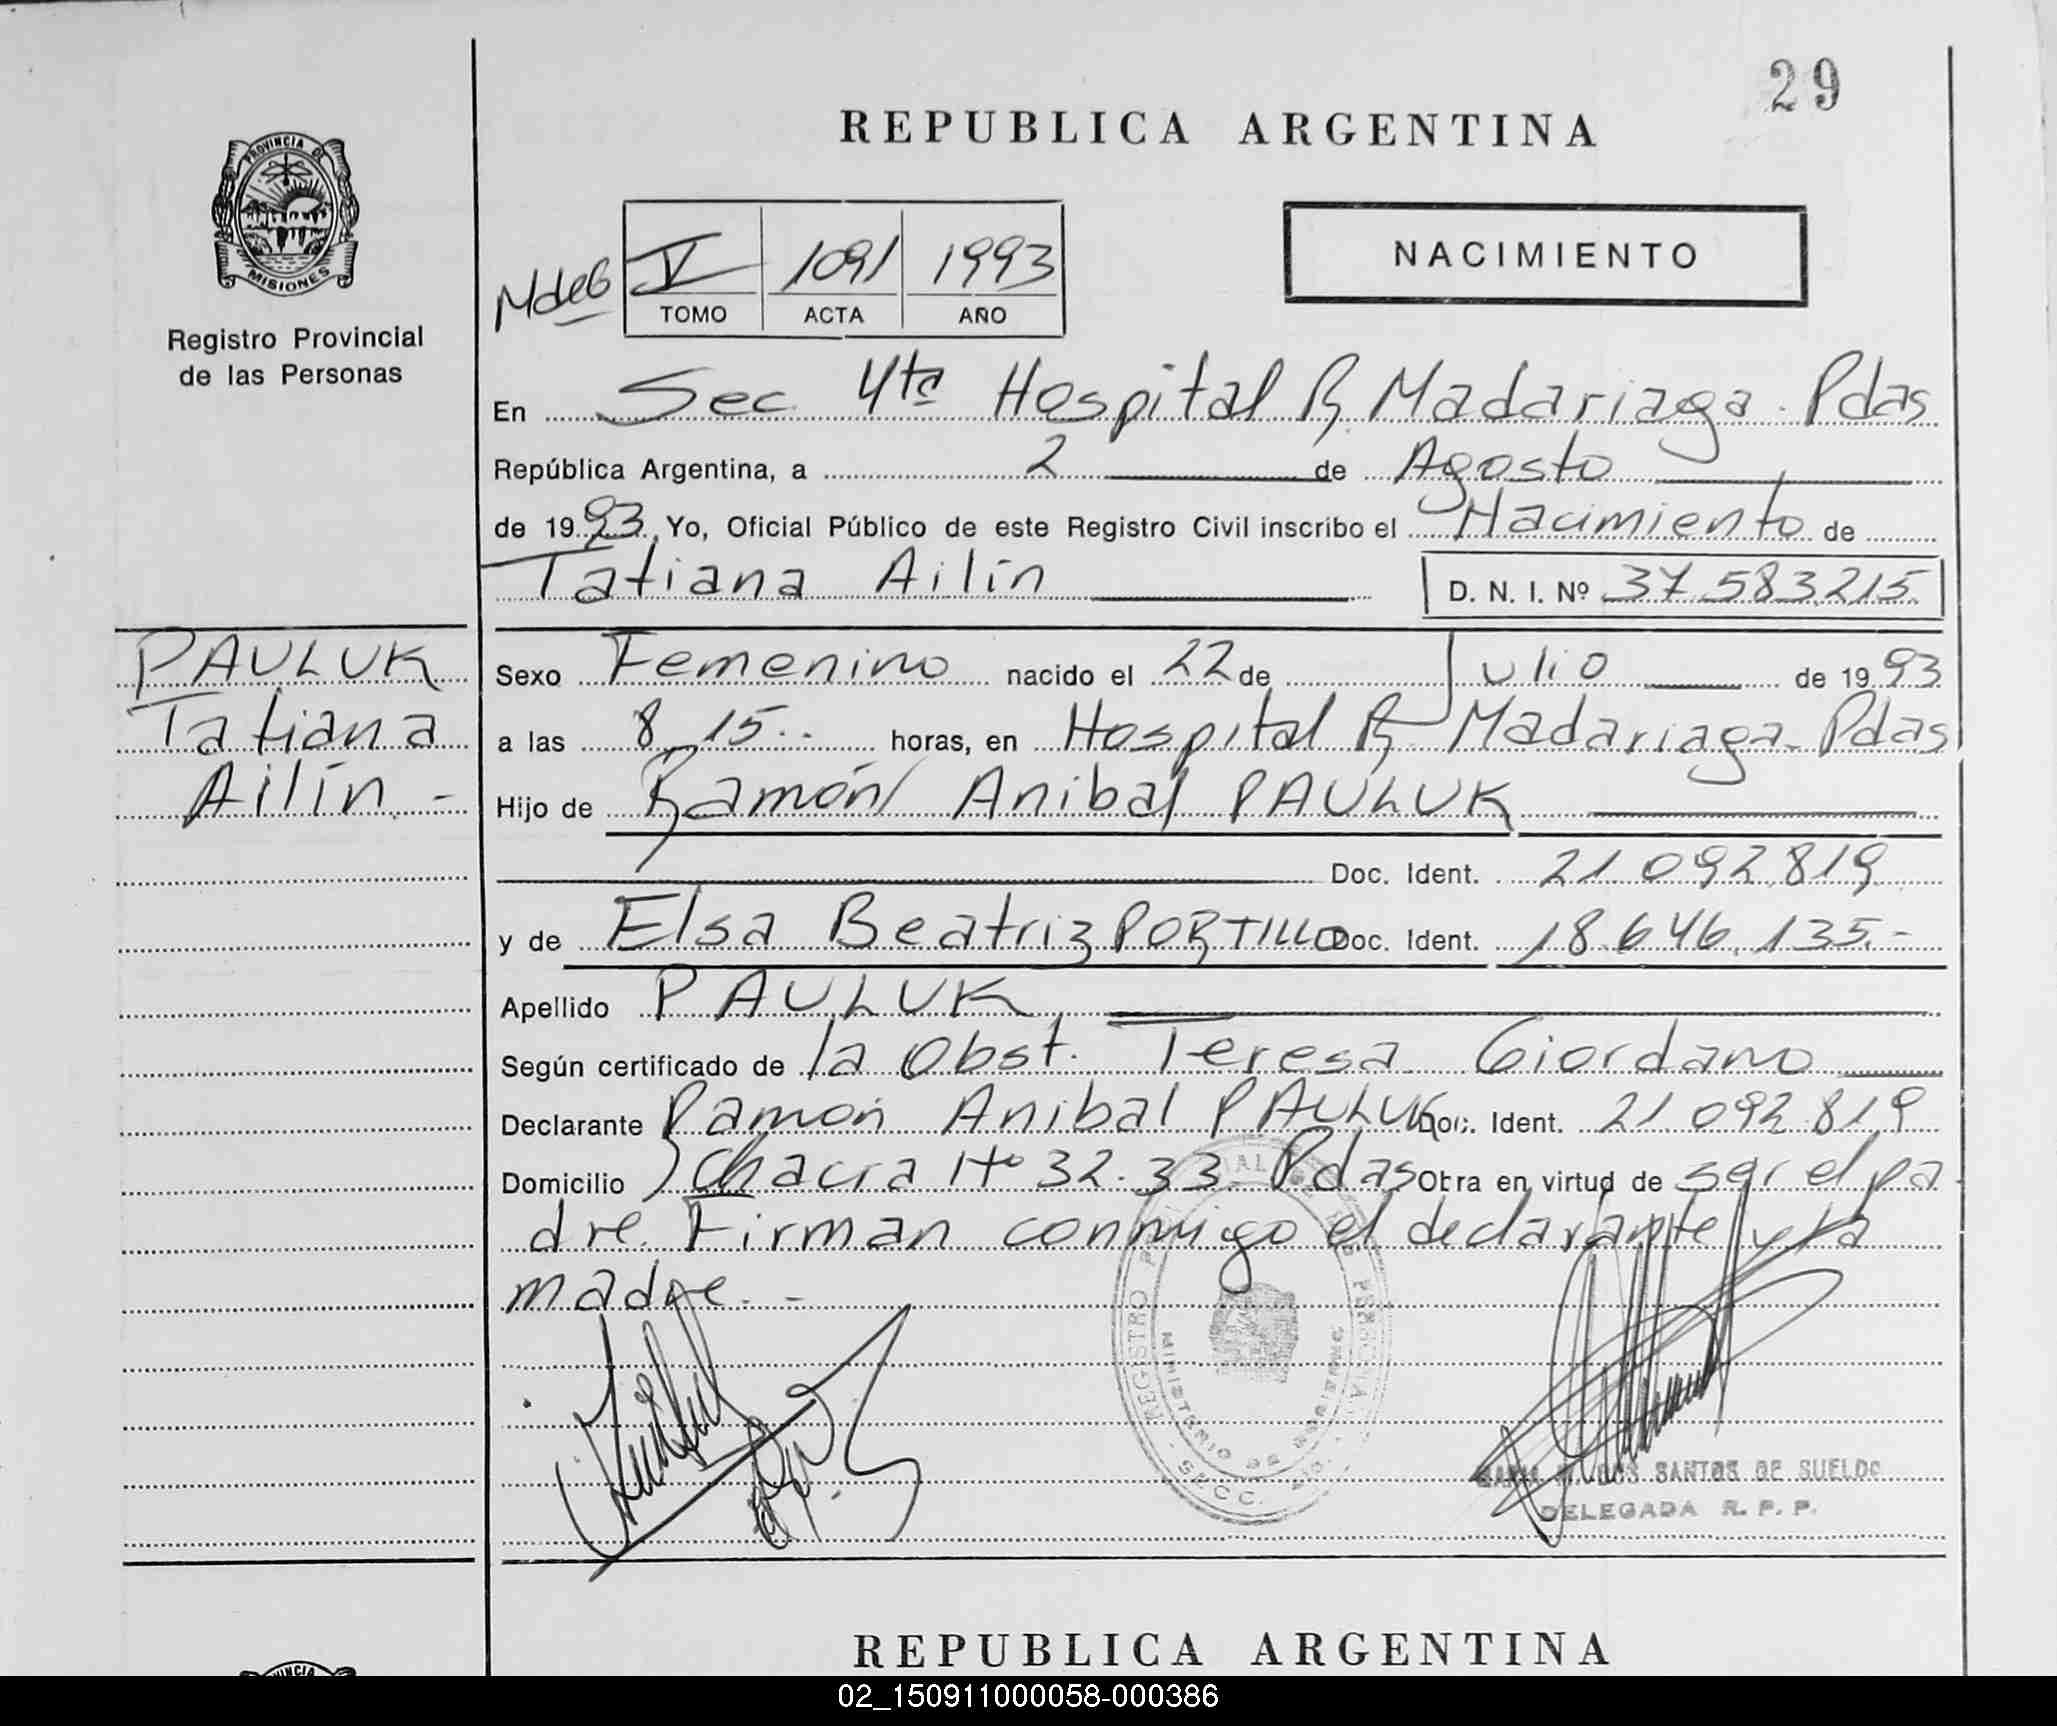 29
REPUBLICA ARGENTINA
PROVINCIA DE
MISIONES
Registro Provincial
de las Personas
V 1091 1993
TOMO ACTA AÑO
NACIMIENTO
En Sec 4ta Hospital R Madariaga. Pdas
República Argentina, a 2 de Agosto
de 1993, Yo, Oficial Público de este Registro Civil inscribo el Nacimiento de
Tatiana Ailín D. N. I. Nº 37.583.215
PAULUK
Tatiana
Ailín -
Sexo Femenino nacido el 22 de Julio de 1993
a las 8,15.. horas, en Hospital R Madariaga. Pdas
Hijo de Ramón Anibal PAULUK
Doc. Ident. 21.092.819
y de Elsa Beatriz PORTILLO Doc. Ident. 18.646.135.-
Apellido PAULUK
Según certificado de la Obst. Teresa Giordano
Declarante Ramon Anibal PAULUK Doc. Ident. 21.092.819
Domicilio Chacra Nº 32.33 Pdas Obra en virtud de ser el pa
dre. Firman conmigo el declarante y la
madre. -
REGISTRO PROVINCIAL DE LAS PERSONAS
MINISTERIO DE GOBIERNO
DOS SANTOS DE SUELDO
DELEGADA R. P. P.
REPUBLICA ARGENTINA
02_150911000058-000386